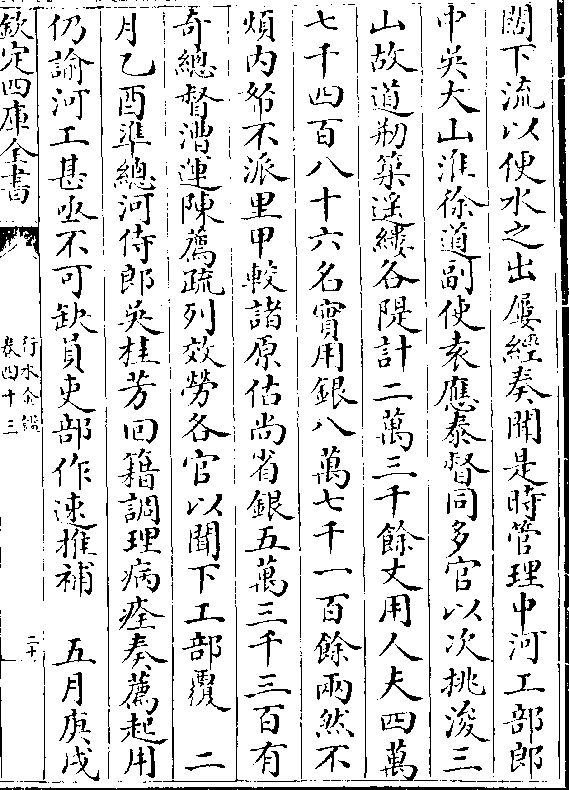 闊下流以便水之出屢經奏聞是時管理中河工部郎
中吳大山淮徐道副使袁應泰督同多官以次挑浚三
山故道剏築遥縷各隄計二萬三千餘丈用人夫四萬
七千四百八十六名實用銀八萬七千一百餘兩然不
煩内帑不派里甲較諸原估尚省銀五萬三千三百有
奇總督漕運陳薦疏列效勞各官以聞下工部覆　二
月乙酉準總河侍郎吳桂芳回籍調理病痊奏薦起用
仍諭河工甚亟不可缺員吏部作速推補　五月庚戌
欽定四庫全書
行水金鑑
卷四十三
二十